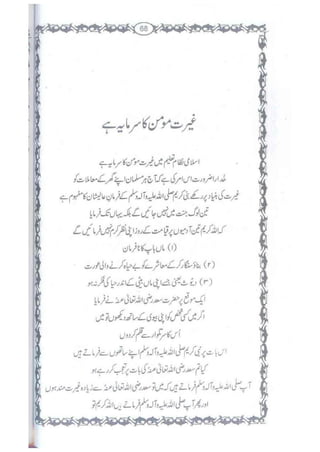 66
غیرت مومن کا سرمایہ ہے
اسلامی نظام تعلیم میں غیرت مومن کا سرمایہ ہے
خدارا ضرورت اس امر کی ہے کہ آج ہر مسلمان اپنے گھر کے معاملات کو
غیرت کی بنیاد پر رکھے نبی کریم صلی اللہ علیہ وآلہ وسلم کے فرمان عالیشان کا مفہوم ہے
تین لوگ جنت میں نہیں جائیں گے بلکہ یہاں تک فرمایا
کہ اللہ کریم تین آدمیوں پر قیامت کے روز اپنی نظر کرم نہیں فرمائیں گے
(۱) ماں باپ کا نافرمان
(۲) بناؤ سنگار کر کے معاشرے کو بے حیا کرنے والی عورت
(۳) دیوث یعنی جسے اپنی ماں بیٹی کے اندر حیا کی فکر نہ ہو
ایک موقع پر حضرت سعد رضی اللہ تعالیٰ عنہ نے فرمایا
اگر میں کسی شخص کو اپنی بیوی کے ساتھ دیکھوں تو میں
اُس کا سر تلوار سے قلم کر دوں
اس بات پر نبی کریم صلی اللہ علیہ وآلہ وسلم اپنے ساتھیوں سے فرماتے ہیں
کیا تم سعد رضی اللہ تعالیٰ عنہ کی بات پر تعجب کر رہے ہو
آپ صلی اللہ علیہ وآلہ وسلم فرماتے ہیں کہ میں تو سعد رضی اللہ تعالیٰ عنہ سے زیادہ غیرت مند ہوں
اور پھر آپ صلی اللہ علیہ وآلہ وسلم فرماتے ہیں اللہ کریم تو